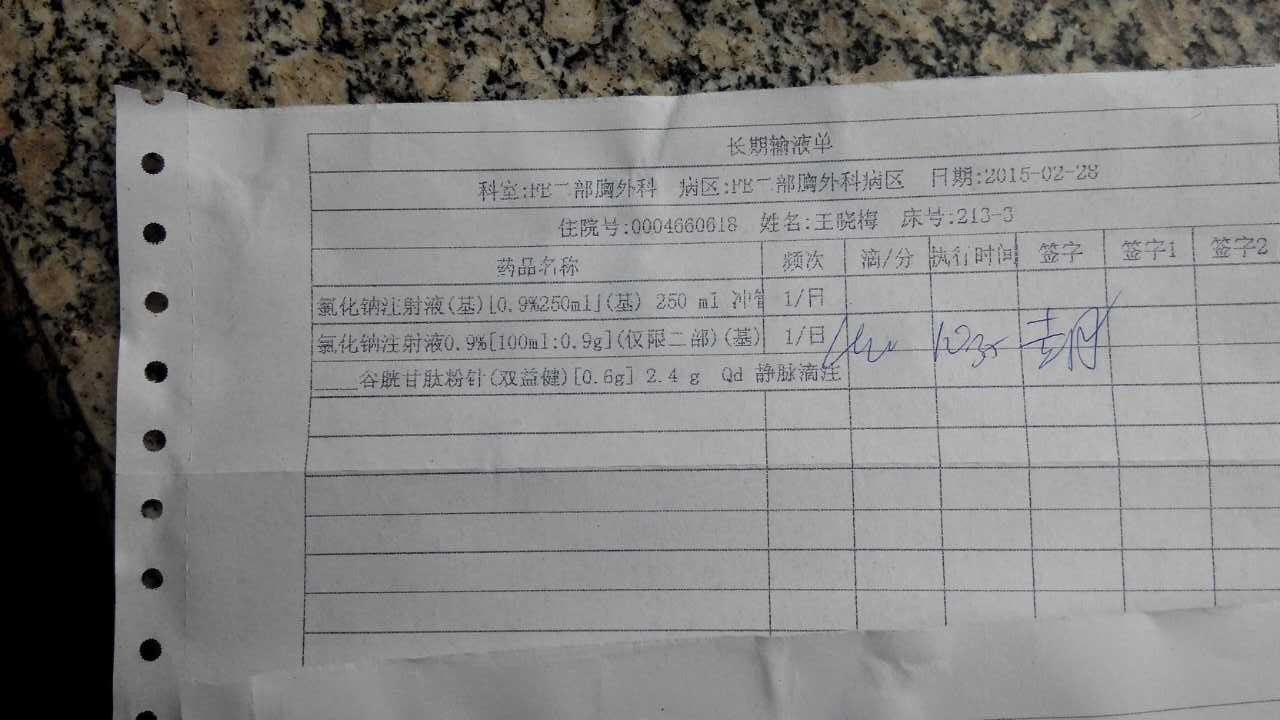 长期输液单
科室:FE二部胸外科 病区:FE二部胸外科病区 日期:2015-02-28
住院号:0004660618 姓名:王晓梅 床号:213-3
药品名称 频次 滴/分 执行时间 签字 签字1 签字2
氯化钠注射液(基)[0.9%250ml](基) 250 ml 冲管 1/日
氯化钠注射液0.9%[100ml:0.9g](仅限二部)(基) 1/日
____谷胱甘肽粉针(双益健)[0.6g] 2.4 g Qd 静脉滴注